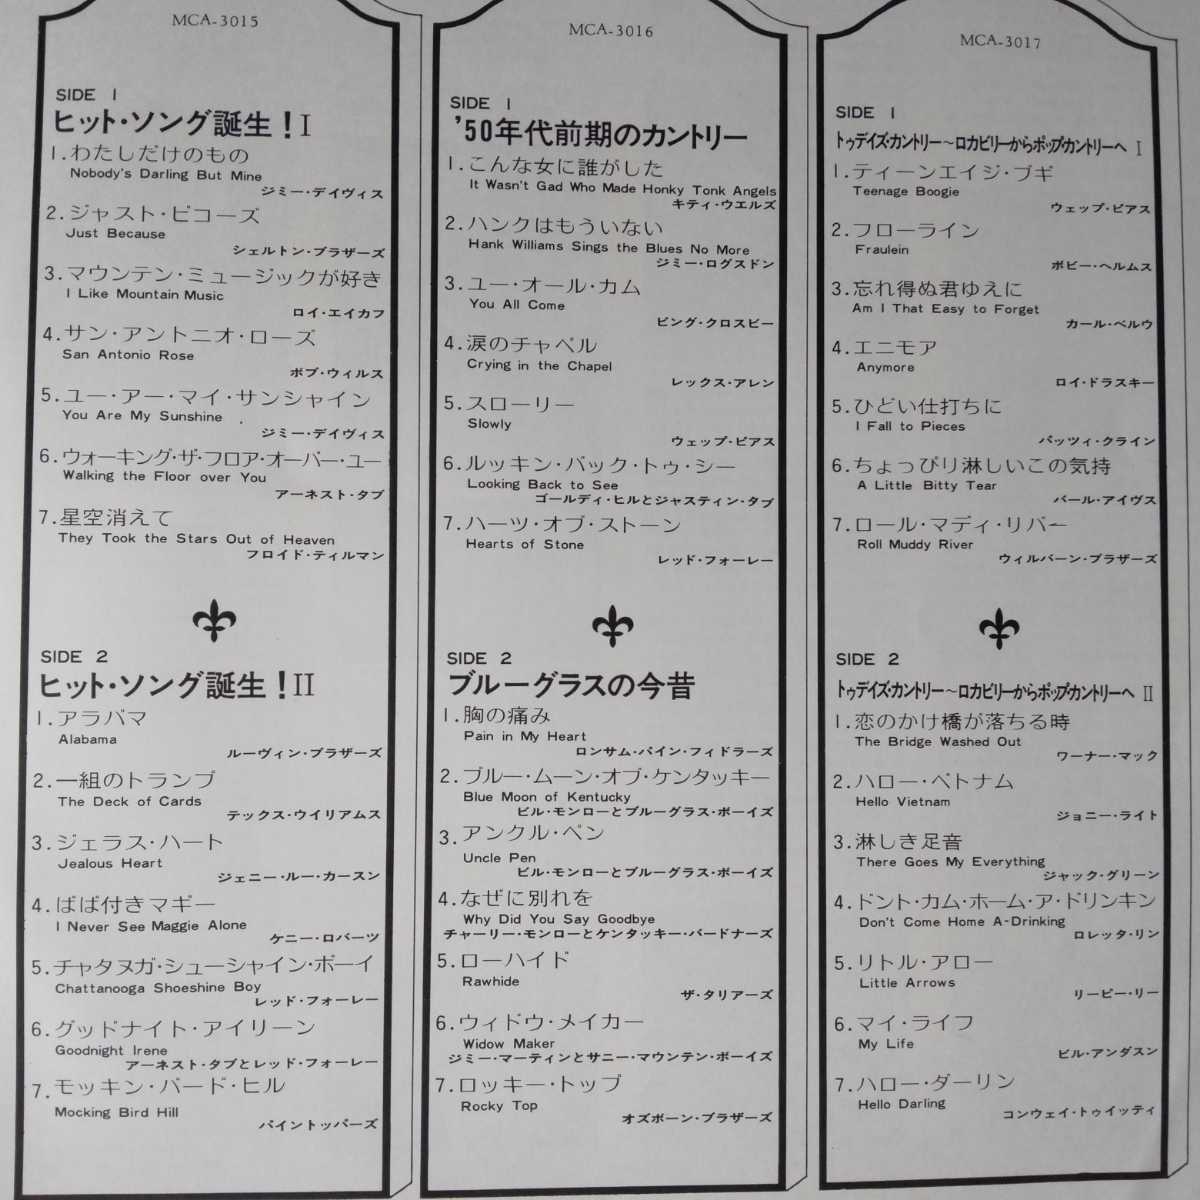 MCA-3015
SIDE 1
ヒット・ソング誕生！I
1.わたしだけのもの
Nobody's Darling But Mine
ジミー・デイヴィス
2.ジャスト・ビコーズ
Just Because
シェルトン・ブラザーズ
3.マウンテン・ミュージックが好き
I Like Mountain Music
ロイ・エイカフ
4.サン・アントニオ・ローズ
San Antonio Rose
ボブ・ウィルス
5.ユー・アー・マイ・サンシャイン
You Are My Sunshine
ジミー・デイヴィス
6.ウォーキング・ザ・フロア・オーバー・ユー
Walking the Floor over You
アーネスト・タブ
7.星空消えて
They Took the Stars Out of Heaven
フロイド・ティルマン
SIDE 2
ヒット・ソング誕生！II
1.アラバマ
Alabama
ルーヴィン・ブラザーズ
2.一組のトランプ
The Deck of Cards
テックス・ウイリアムス
3.ジェラス・ハート
Jealous Heart
ジェニー・ルー・カースン
4.ばば付きマギー
I Never See Maggie Alone
ケニー・ロバーツ
5.チャタヌガ・シューシャイン・ボーイ
Chattanooga Shoeshine Boy
レッド・フォーレー
6.グッドナイト・アイリーン
Goodnight Irene
アーネスト・タブとレッド・フォーレー
7.モッキン・バード・ヒル
Mocking Bird Hill
パイントッパーズ
MCA-3016
SIDE 1
'50年代前期のカントリー
1.こんな女に誰がした
It Wasn't Gad Who Made Honky Tonk Angels
キティ・ウエルズ
2.ハンクはもういない
Hank Williams Sings the Blues No More
ジミー・ログスドン
3.ユー・オール・カム
You All Come
ビング・クロスビー
4.涙のチャペル
Crying in the Chapel
レックス・アレン
5.スローリー
Slowly
ウェッブ・ピアス
6.ルッキン・バック・トゥ・シー
Looking Back to See
ゴールディ・ヒルとジャスティン・タブ
7.ハーツ・オブ・ストーン
Hearts of Stone
レッド・フォーレー
SIDE 2
ブルーグラスの今昔
1.胸の痛み
Pain in My Heart
ロンサム・パイン・フィドラーズ
2.ブルー・ムーン・オブ・ケンタッキー
Blue Moon of Kentucky
ビル・モンローとブルーグラス・ボーイズ
3.アンクル・ペン
Uncle Pen
ビル・モンローとブルーグラス・ボーイズ
4.なぜに別れを
Why Did You Say Goodbye
チャーリー・モンローとケンタッキー・パードナーズ
5.ローハイド
Rawhide
ザ・タリアーズ
6.ウィドウ・メイカー
Widow Maker
ジミー・マーティンとサニー・マウンテン・ボーイズ
7.ロッキー・トップ
Rocky Top
オズボーン・ブラザーズ
MCA-3017
SIDE 1
トゥデイズ・カントリー～ロカビリーからポップ・カントリーへ I
1.ティーンエイジ・ブギ
Teenage Boogie
ウェッブ・ピアス
2.フローライン
Fraulein
ボビー・ヘルムス
3.忘れ得ぬ君ゆえに
Am I That Easy to Forget
カール・ベルウ
4.エニモア
Anymore
ロイ・ドラスキー
5.ひどい仕打ちに
I Fall to Pieces
パッツィ・クライン
6.ちょっぴり淋しいこの気持
A Little Bitty Tear
バール・アイヴス
7.ロール・マディ・リバー
Roll Muddy River
ウィルバーン・ブラザーズ
SIDE 2
トゥデイズ・カントリー～ロカビリーからポップ・カントリーへ II
1.恋のかけ橋が落ちる時
The Bridge Washed Out
ワーナー・マック
2.ハロー・ベトナム
Hello Vietnam
ジョニー・ライト
3.淋しき足音
There Goes My Everything
ジャック・グリーン
4.ドント・カム・ホーム・ア・ドリンキン
Don't Come Home A-Drinking
ロレッタ・リン
5.リトル・アロー
Little Arrows
リーピー・リー
6.マイ・ライフ
My Life
ビル・アンダスン
7.ハロー・ダーリン
Hello Darling
コンウェイ・トゥイッティ